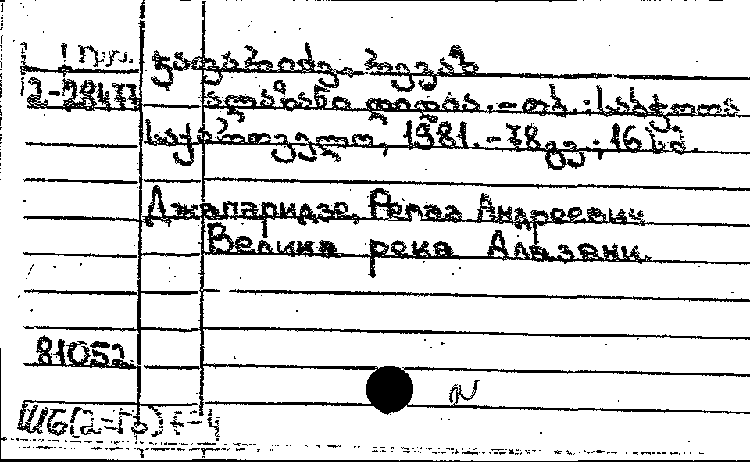 ჯაფარიძე, რევაზ
2-28477 ალაზანი დიდია.-თბ.:საბჭოთა
საქართველო, 1981.-78გვ.; 16 სმ.
Джапаридзе, Реваз Андреевич
Велика река Алазани.
81052
Ш6(2=Гр)+-4